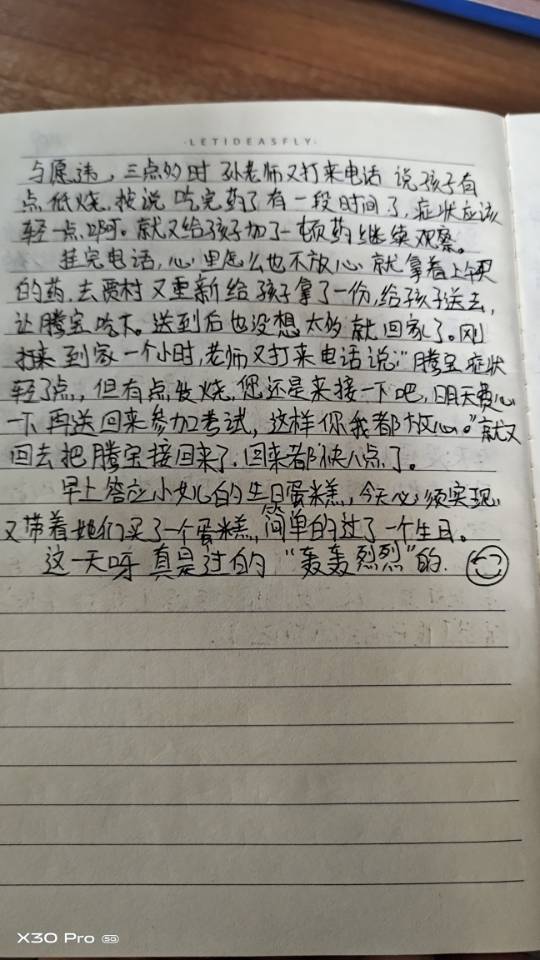 ·LETIDEASFLY·
与愿违，三点的时 孙老师又打来电话 说孩子有
点低烧，按说 吃完药了有一段时间了，症状应该
轻一点啊。就又给孩子加了一顿药继续观察。
挂完电话，心里怎么也不放心 就拿着上午买
的药，去西村又重新给孩子拿了一份，给孩子送去，
让腾宝吃下。送到后也没想太多就回家了。刚
到家一个小时，老师又打来电话说："腾宝症状
轻了点，但有点低烧，您还是来接一下吧，明天费心
一下再送回来参加考试，这样你我都放心。"就又
回去把腾宝接回来了。回来都快八点了。
早上答应小女儿的生日蛋糕，今天必须实现，
又带着她们买了一个蛋糕，简单的过了一个生日。
这一天呀 真是过的 "轰轰烈烈"的.
X30 Pro 5G